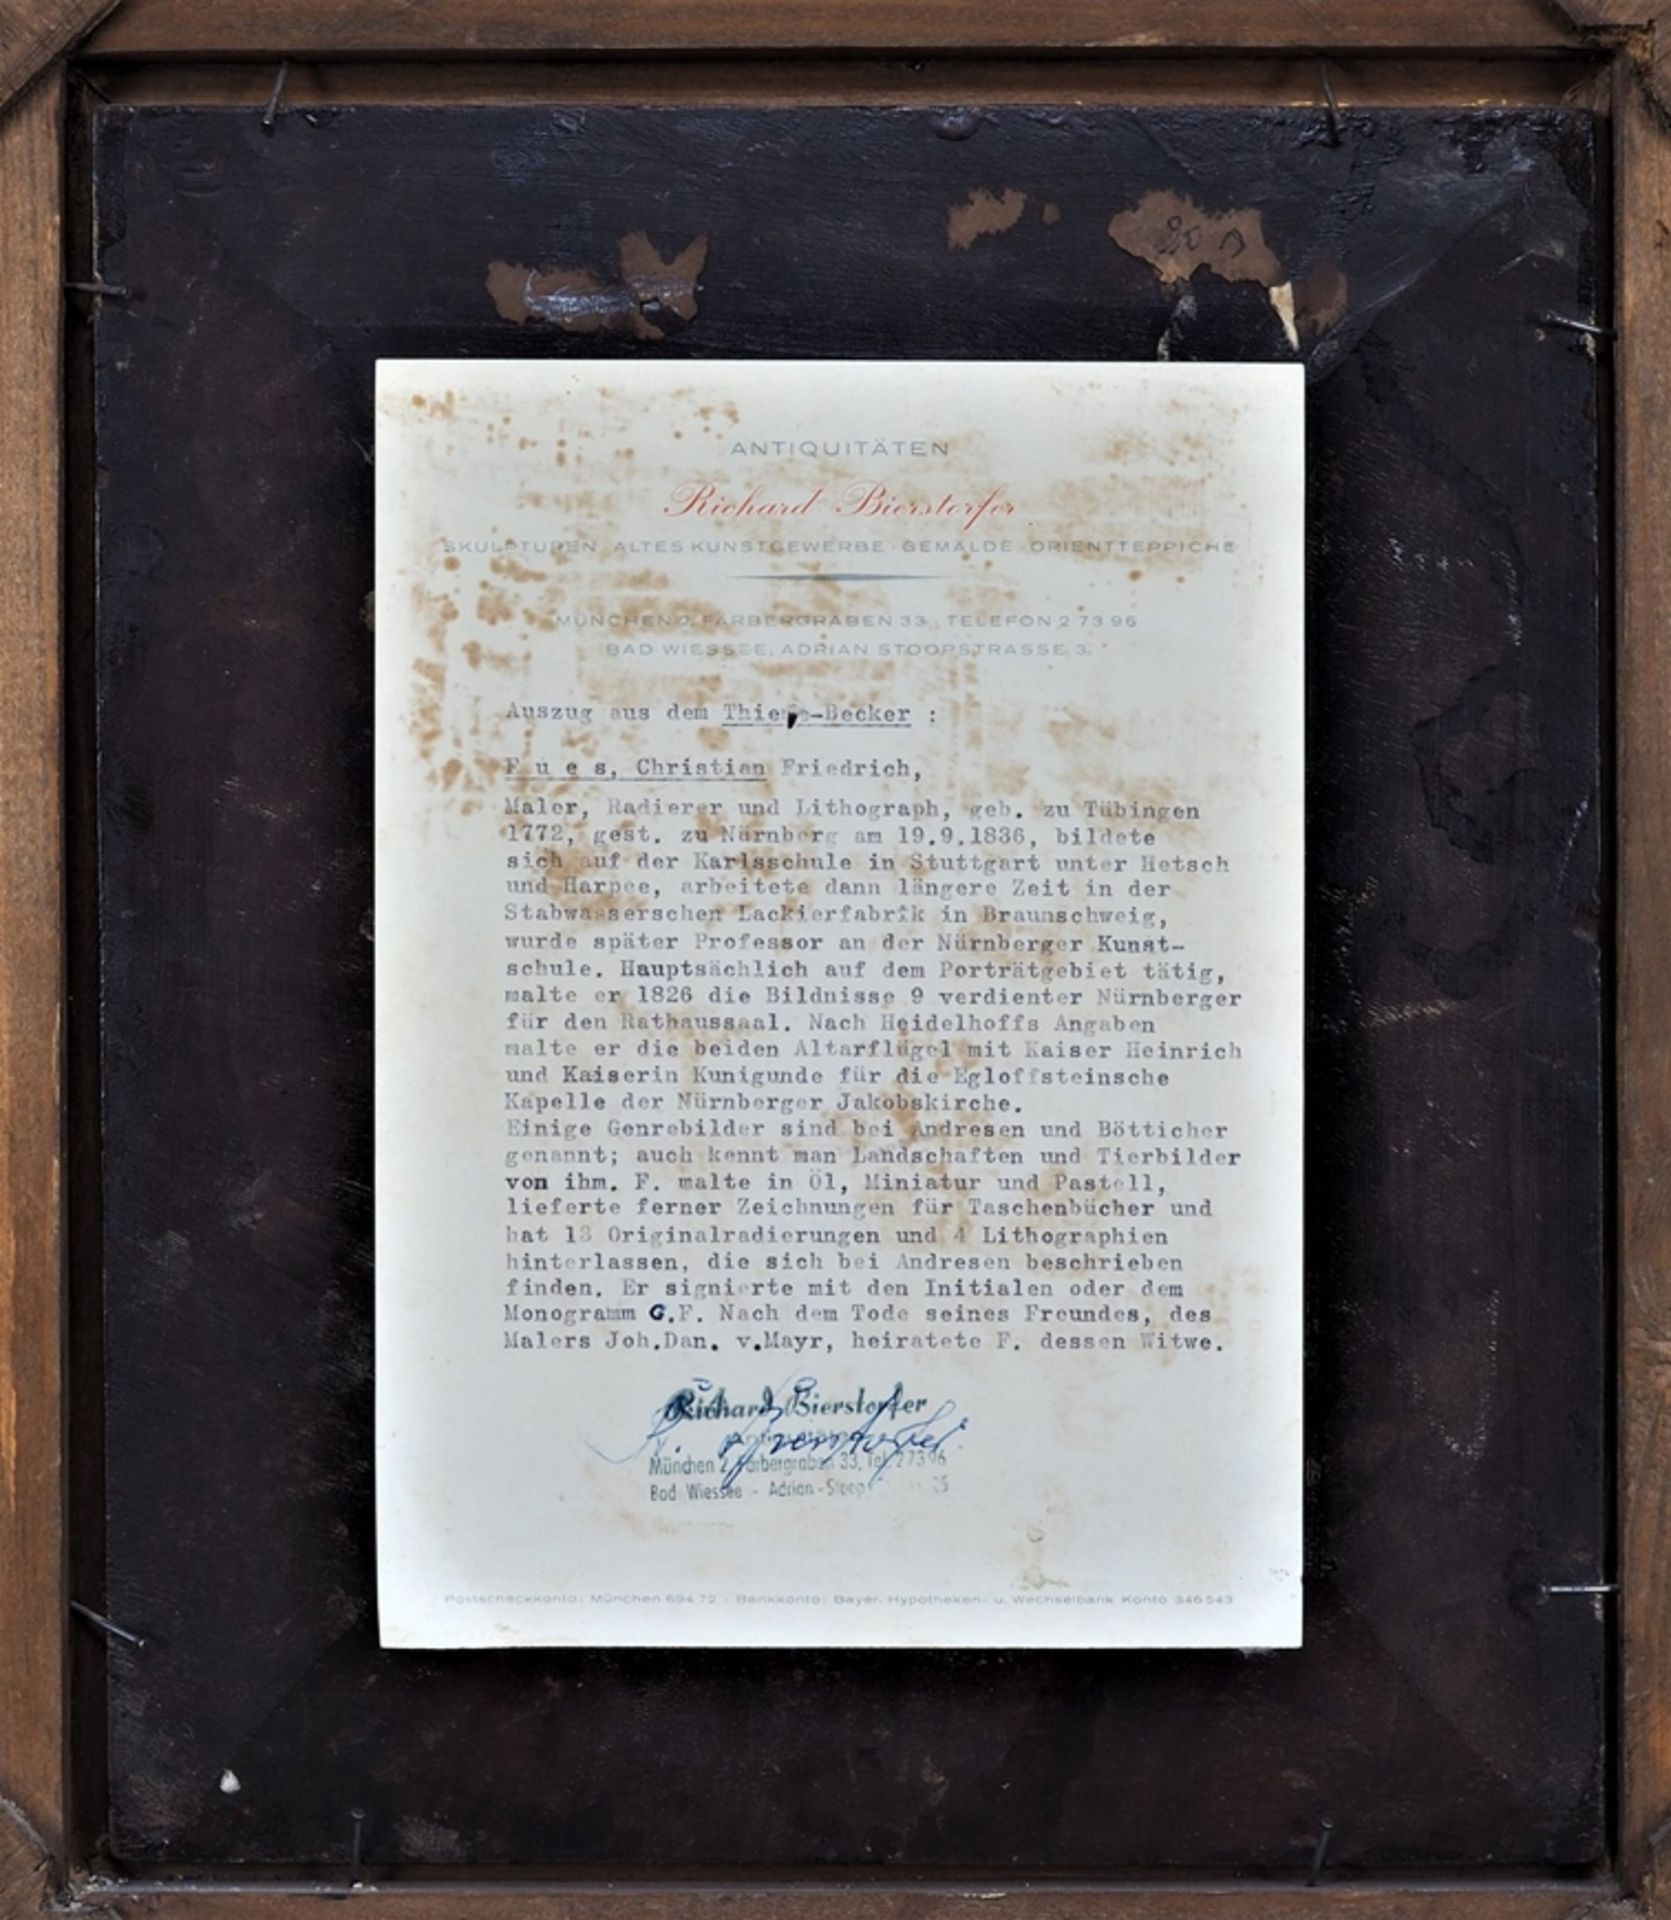 ANTIQUITÄTEN
Richard Bierstorfer
SKULPTUREN · ALTES KUNSTGEWERBE · GEMÄLDE · ORIENTTEPPICHE
MÜNCHEN 2, FÄRBERGRABEN 33, TELEFON 2 73 96
BAD WIESSEE, ADRIAN STOOPSTRASSE 3
Auszug aus dem Thieme-Becker :
F u e s, Christian Friedrich,
Maler, Radierer und Lithograph, geb. zu Tübingen
1772, gest. zu Nürnberg am 19.9.1836, bildete
sich auf der Karlsschule in Stuttgart unter Hetsch
und Harpee, arbeitete dann längere Zeit in der
Stabwasserschen Lackierfabrik in Braunschweig,
wurde später Professor an der Nürnberger Kunst-
schule. Hauptsächlich auf dem Porträtgebiet tätig,
malte er 1826 die Bildnisse 9 verdienter Nürnberger
für den Rathaussaal. Nach Heidelhoffs Angaben
malte er die beiden Altarflügel mit Kaiser Heinrich
und Kaiserin Kunigunde für die Egloffsteinsche
Kapelle der Nürnberger Jakobskirche.
Einige Genrebilder sind bei Andresen und Bötticher
genannt; auch kennt man Landschaften und Tierbilder
von ihm. F. malte in Öl, Miniatur und Pastell,
lieferte ferner Zeichnungen für Taschenbücher und
hat 13 Originalradierungen und 4 Lithographien
hinterlassen, die sich bei Andresen beschrieben
finden. Er signierte mit den Initialen oder dem
Monogramm G.F. Nach dem Tode seines Freundes, des
Malers Joh.Dan. v.Mayr, heiratete F. dessen Witwe.
Richard Bierstorfer
München 2, Färbergraben 33, Tel. 27396
Bad Wiessee - Adrian-Stoop
Postscheckkonto: München 694 72 · Bankkonto: Bayer. Hypotheken- u. Wechselbank Konto 346543